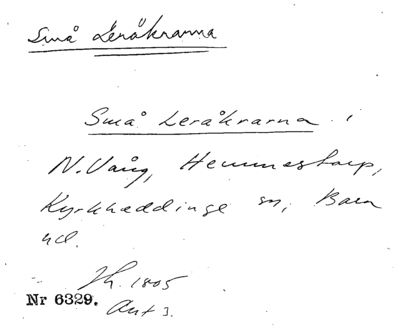 Små Leråkrarna
Små Leråkrarna i
N. Vång, Hemmestorp,
Kyrkheddinge sn, Bara
hd.
Jh. 1805
Nr 6329.
Akt 3.